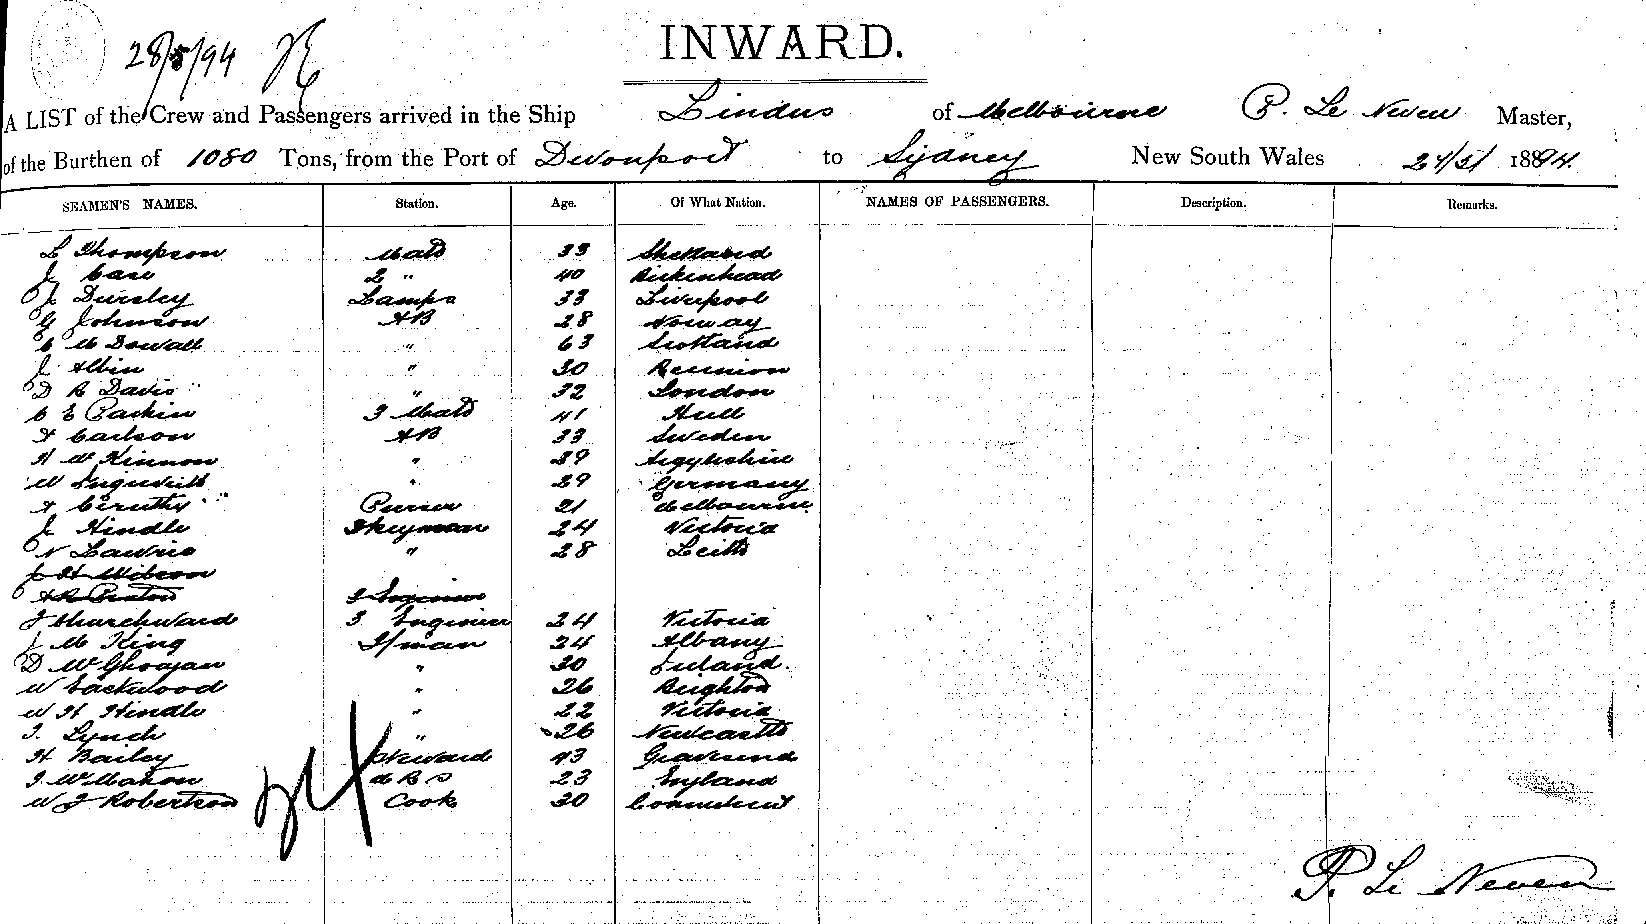 28/5/94
INWARD.
A LIST of the Crew and Passengers arrived in the Ship Lindus of Melbourne P. Le Neven Master,
of the Burthen of 1080 Tons, from the Port of Devonport to Sydney New South Wales 24/5/ 1894.
SEAMEN'S NAMES. Station. Age. Of What Nation. NAMES OF PASSENGERS. Description. Remarks.
L Thompson Mate 33 Shetland
J Case 2 " 40 Birkenhead
J Dursley Lamps 33 Liverpool
G Johnson AB 28 Norway
C Mc Dowall " 63 Scotland
J Albin " 30 Reunion
D R Davis " 32 London
C E Parkin 3 Mate 41 Hull
A Carlson AB 33 Sweden
H Mc Kinnon " 39 Argyleshire
W " 29 Germany
A 21 Melbourne
J Hindle 24 Victoria
N Lawrie " 28 Leith
J H Wilson
3 Engineer
J Churchward 3 Engineer 24 Victoria
J Mc King F/man 24 Albany
D Mc " 30 Ireland.
W Eastwood " 26 Brighton
W H Hindle " 22 Victoria
T. Lynch " 26 Newcastle
H Bailey Steward 43 Gravesend
J McMahon 23 England
W J Robertson Cook 30 Connecticut
P. Le Neven